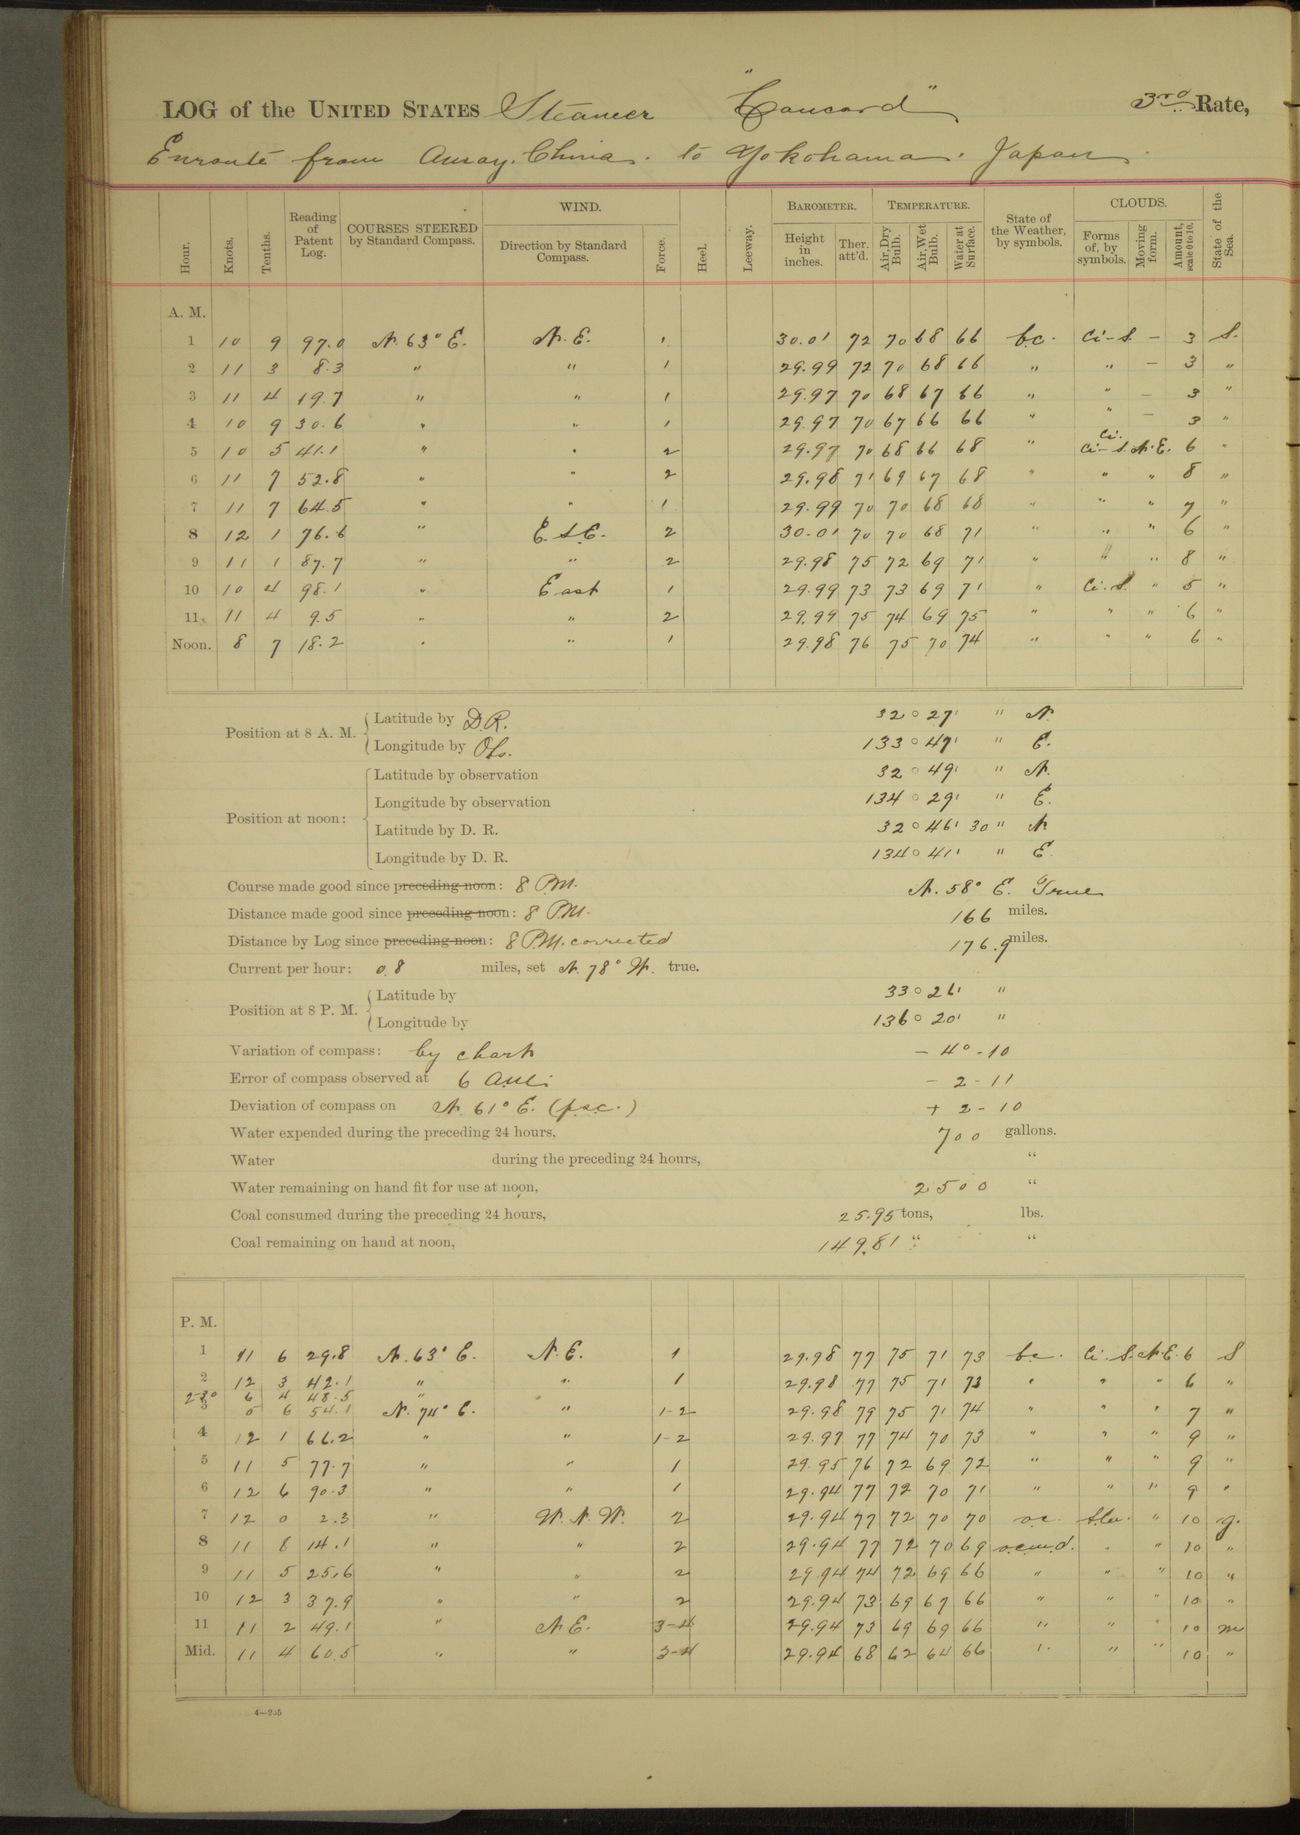 LOG of the UNITED STATES Steamer "Concord" 3rd Rate,
Enroute from Amoy, China. to Yokohama. Japan.
Hour. Knots. Tenths. Reading of Patent Log. COURSES STEERED by Standard Compass. WIND. Direction by Standard Compass. Force. Heel. Leeway. BAROMETER. Height in inches. Ther. att'd. TEMPERATURE. Air, Dry Bulb. Air, Wet Bulb. Water at Surface. State of the Weather, by symbols. CLOUDS. Forms of, by symbols. Moving form. Amount, scale 0 to 10. State of the Sea.
A. M.
1 10 9 97.0 N. 63° E. N. E. 1 30.01 72 70 68 66 b.c. Ci-S. – 3 S.
2 11 3 8.3 " " 1 29.99 72 70 68 66 " " – 3 "
3 11 4 19.7 " " 1 29.97 70 68 67 66 " " – 3 "
4 10 9 30.6 " " 1 29.97 70 67 66 66 " " – 3 "
5 10 5 41.1 " " 2 29.97 70 68 66 68 " Ci. Ci-S. N.E. 6 "
6 11 7 52.8 " " 2 29.98 71 69 67 68 " " " 8 "
7 11 7 64.5 " " 1 29.99 70 70 68 68 " " " 7 "
8 12 1 76.6 " E.S.E. 2 30.01 70 70 68 71 " " " 6 "
9 11 1 87.7 " " 2 29.98 75 72 69 71 " " " 8 "
10 10 4 98.1 " East 1 29.99 73 73 69 71 " Ci.S. " 5 "
11 11 4 9.5 " " 2 29.99 75 74 69 75 " " " 6 "
Noon. 8 7 18.2 " " 1 29.98 76 75 70 74 " " " 6 "
Position at 8 A. M. Latitude by D.R. 32° 27' " N.
Longitude by Obs. 133° 47' " E.
Position at noon: Latitude by observation 32° 49' " N.
Longitude by observation 134° 29' " E.
Latitude by D. R. 32° 46' 30" N
Longitude by D. R. 134° 41' " E.
Course made good since preceding noon: 8 P.M. N. 58° E. True
Distance made good since preceding noon: 8 P.M. 166 miles.
Distance by Log since preceding noon: 8 P.M. corrected 176.9 miles.
Current per hour: 0.8 miles, set N. 78° W. true.
Position at 8 P. M. Latitude by 33° 26' "
Longitude by 136° 20' "
Variation of compass: by chart – 4° - 10
Error of compass observed at 6 A.M. – 2 - 11
Deviation of compass on N. 61° E. (p.s.c.) + 2 - 10
Water expended during the preceding 24 hours, 700 gallons.
Water during the preceding 24 hours, "
Water remaining on hand fit for use at noon, 2500 "
Coal consumed during the preceding 24 hours, 25.95 tons, lbs.
Coal remaining on hand at noon, 149.81 " "
P. M.
1 11 6 29.8 N. 63° E. N. E. 1 29.98 77 75 71 73 b.c. Ci.S. N.E. 6 S
2 12 3 42.1 " " 1 29.98 77 75 71 73 " " " 6 "
2 30 6 4 48.5 " "
3 5 6 54.1 N. 74° E. " 1-2 29.98 79 75 71 74 " " " 7 "
4 12 1 66.2 " " 1-2 29.97 77 74 70 73 " " " 9 "
5 11 5 77.7 " " 1 29.95 76 72 69 72 " " " 9 "
6 12 6 90.3 " " 1 29.94 77 72 70 71 " " " 9 "
7 12 0 2.3 " W. N. W. 2 29.94 77 72 70 70 o.c. " 10 g.
8 11 8 14.1 " " 2 29.94 77 72 70 69 o.c.m.d. " " 10 "
9 11 5 25.6 " " 2 29.94 74 72 69 66 " " " 10 "
10 12 3 37.9 " " 2 29.94 73 69 67 66 " " " 10 "
11 11 2 49.1 " N E. 3-4 29.94 73 69 69 66 " " " 10 m
Mid. 11 4 60.5 " " 3-4 29.94 68 62 64 66 " " " 10 "
4—255